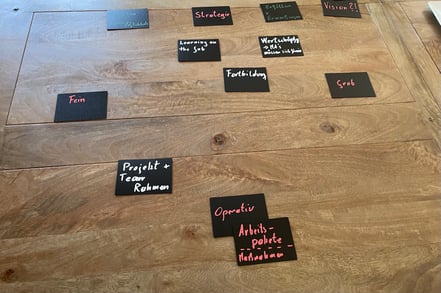 Strategie
Vision?!
Learning on the
job
Wertschöpfg
Fortbildung
Fein
Grob
Projekt +
Team
Rahmen
Operativ
Arbeits-
pakete
Maßnahmen